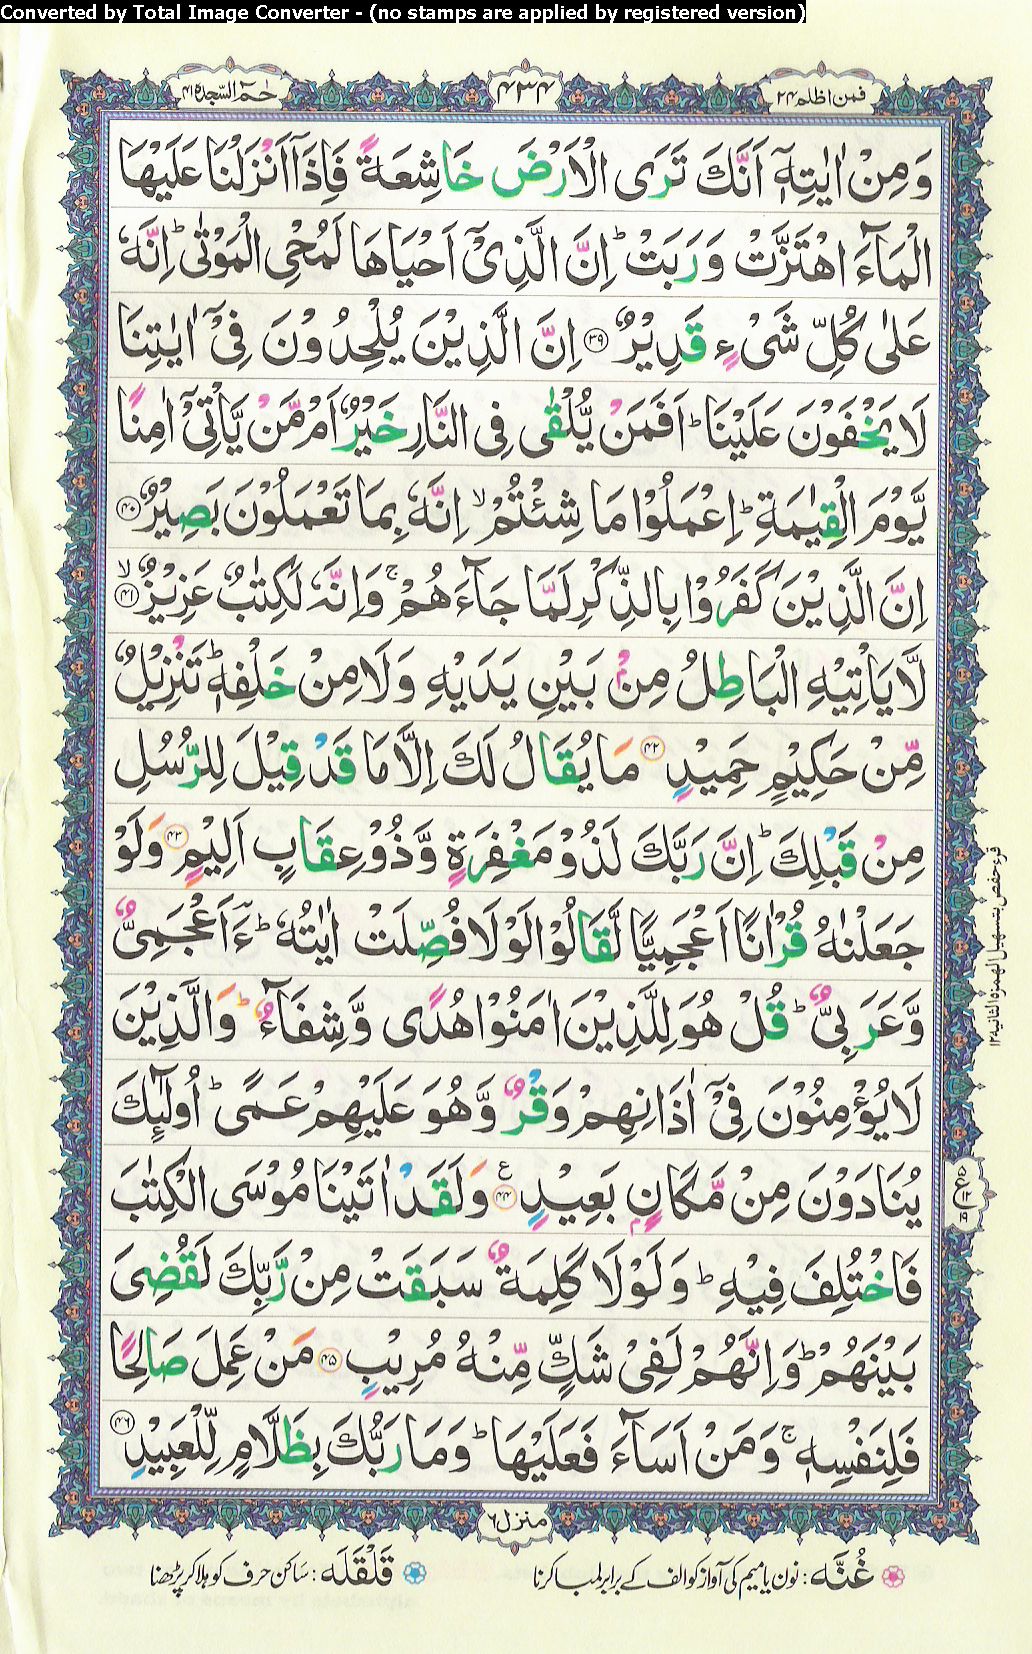 Converted by Total Image Converter - (no stamps are applied by registered version)
فمن اظلم ٢٤
٤٣٤
حٰمٓ السجدة ٤١
وَمِنْ اٰيٰتِهٖۤ اَنَّكَ تَرَى الْاَرْضَ خَاشِعَةً فَاِذَاۤ اَنْزَلْنَا عَلَيْهَا
الْمَآءَ اهْتَزَّتْ وَرَبَتْ ؕ اِنَّ الَّذِيْۤ اَحْيَاهَا لَمُحْيِ الْمَوْتٰى ؕ اِنَّهٗ
عَلٰى كُلِّ شَيْءٍ قَدِيْرٌ ﴿٣٩﴾ اِنَّ الَّذِيْنَ يُلْحِدُوْنَ فِيْۤ اٰيٰتِنَا
لَا يَخْفَوْنَ عَلَيْنَا ؕ اَفَمَنْ يُّلْقٰى فِي النَّارِ خَيْرٌ اَمْ مَّنْ يَّاْتِيْۤ اٰمِنًا
يَّوْمَ الْقِيٰمَةِ ؕ اِعْمَلُوْا مَا شِئْتُمْ ۙ اِنَّهٗ بِمَا تَعْمَلُوْنَ بَصِيْرٌ ﴿٤٠﴾
اِنَّ الَّذِيْنَ كَفَرُوْا بِالذِّكْرِ لَمَّا جَآءَهُمْ ۚ وَاِنَّهٗ لَكِتٰبٌ عَزِيْزٌ ﴿٤١﴾ ۙ
لَّا يَاْتِيْهِ الْبَاطِلُ مِنْۢ بَيْنِ يَدَيْهِ وَلَا مِنْ خَلْفِهٖ ؕ تَنْزِيْلٌ
مِّنْ حَكِيْمٍ حَمِيْدٍ ﴿٤٢﴾ مَا يُقَالُ لَكَ اِلَّا مَا قَدْ قِيْلَ لِلرُّسُلِ
مِنْ قَبْلِكَ ؕ اِنَّ رَبَّكَ لَذُوْ مَغْفِرَةٍ وَّذُوْ عِقَابٍ اَلِيْمٍ ﴿٤٣﴾ وَلَوْ
جَعَلْنٰهُ قُرْاٰنًا اَعْجَمِيًّا لَّقَالُوْا لَوْلَا فُصِّلَتْ اٰيٰتُهٗ ؕ ءَاَعْجَمِيٌّ
وَّعَرَبِيٌّ ؕ قُلْ هُوَ لِلَّذِيْنَ اٰمَنُوْا هُدًى وَّشِفَآءٌ ؕ وَالَّذِيْنَ
لَا يُؤْمِنُوْنَ فِيْۤ اٰذَانِهِمْ وَقْرٌ وَّهُوَ عَلَيْهِمْ عَمًى ؕ اُولٰٓئِكَ
يُنَادَوْنَ مِنْ مَّكَانٍۭ بَعِيْدٍ ﴿٤٤﴾ ع وَلَقَدْ اٰتَيْنَا مُوْسَى الْكِتٰبَ
فَاخْتُلِفَ فِيْهِ ؕ وَلَوْلَا كَلِمَةٌ سَبَقَتْ مِنْ رَّبِّكَ لَقُضِيَ
بَيْنَهُمْ ؕ وَاِنَّهُمْ لَفِيْ شَكٍّ مِّنْهُ مُرِيْبٍ ﴿٤٥﴾ مَنْ عَمِلَ صَالِحًا
فَلِنَفْسِهٖ ۚ وَمَنْ اَسَآءَ فَعَلَيْهَا ؕ وَمَا رَبُّكَ بِظَلَّامٍ لِّلْعَبِيْدِ ﴿٤٦﴾
قرء حفص بتسهيل الهمزة الثانية ١٢
ع ٥ ١٢ ١٩
منزل ٦
غُنَّه : نون یا میم کی آواز کو الف کے برابر لمبا کرنا
قَلْقَلَه : ساکن حرف کو ہلا کر پڑھنا